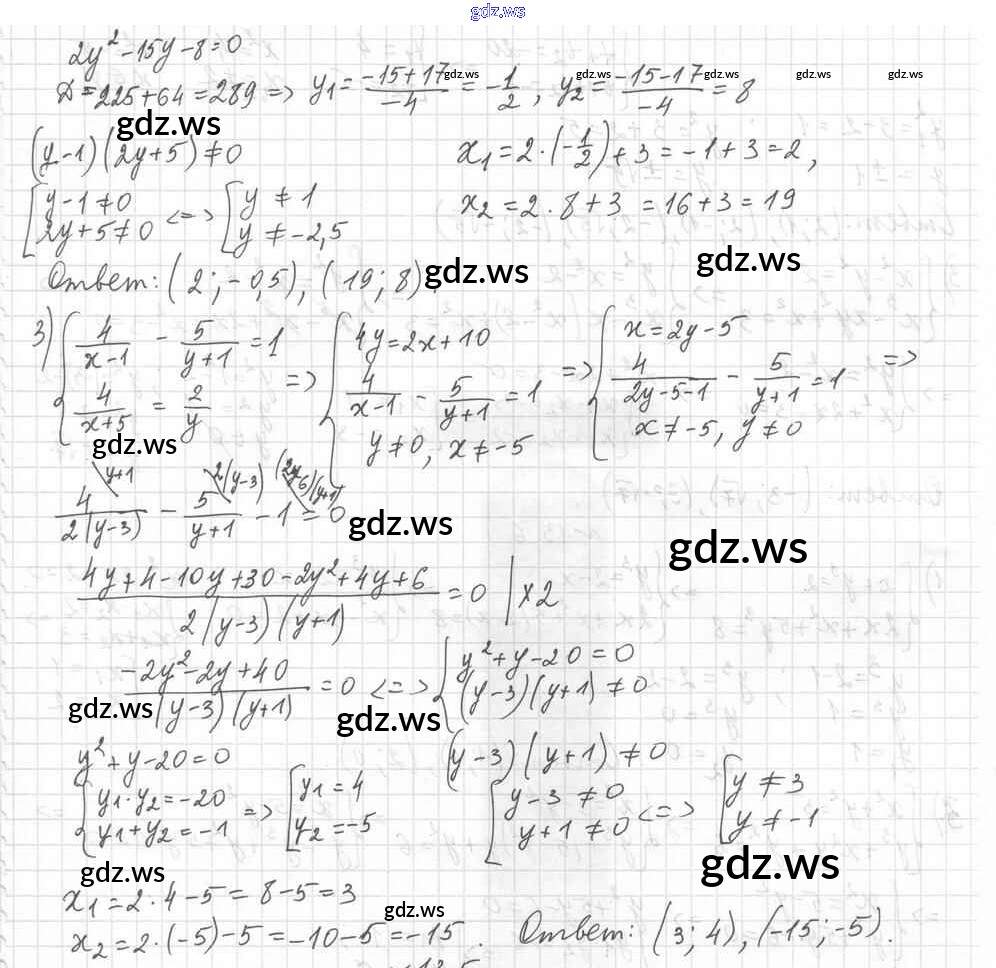 gdz.ws
2y² - 15y - 8 = 0
D = 225 + 64 = 289 => y₁ = (-15 + 17)/(-4) = -1/2 , y₂ = (-15 - 17)/(-4) = 8
gdz.ws gdz.ws gdz.ws gdz.ws gdz.ws
gdz.ws
(y-1)(2y+5) ≠ 0
x₁ = 2·(-1/2) + 3 = -1 + 3 = 2,
[ y-1 ≠ 0 <=> [ y ≠ 1
2y+5 ≠ 0 y ≠ -2,5
x₂ = 2·8 + 3 = 16 + 3 = 19
gdz.ws gdz.ws
Ответ: (2; -0,5), (19; 8).
3) { 4/(x-1) - 5/(y+1) = 1 => { 4y = 2x + 10 => { x = 2y - 5 =>
4/(x+5) = 2/y 4/(x-1) - 5/(y+1) = 1 4/(2y-5-1) - 5/(y+1) = 1
y ≠ 0, x ≠ -5 x ≠ -5, y ≠ 0
gdz.ws
y+1 2(y-3) (2y-6)(y+1)
4/(2(y-3)) - 5/(y+1) - 1 = 0
gdz.ws gdz.ws
(4y + 4 - 10y + 30 - 2y² + 4y + 6)/(2(y-3)(y+1)) = 0 | x2
(-2y² - 2y + 40)/((y-3)(y+1)) = 0 <=> { y² + y - 20 = 0
(y-3)(y+1) ≠ 0
gdz.ws gdz.ws
y² + y - 20 = 0
(y-3)(y+1) ≠ 0
{ y₁·y₂ = -20 => [ y₁ = 4
y₁ + y₂ = -1 y₂ = -5
[ y-3 ≠ 0 <=> [ y ≠ 3
y+1 ≠ 0 y ≠ -1
gdz.ws gdz.ws
x₁ = 2·4 - 5 = 8 - 5 = 3
gdz.ws
x₂ = 2·(-5) - 5 = -10 - 5 = -15.
Ответ: (3; 4), (-15; -5).